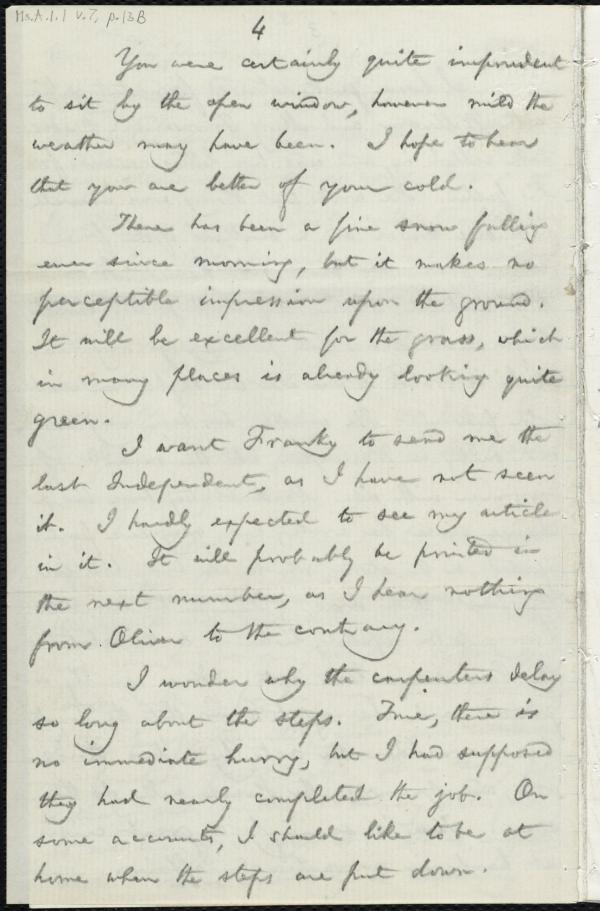 Ms.A.1.1 v.7, p.13B
4
You were certainly quite imprudent
to sit by the open window, however mild the
weather may have been. I hope to hear
that you are better of your cold.
There has been a fine snow falling
ever since morning, but it makes no
perceptible impression upon the ground.
It will be excellent for the grass, which
in many places is already looking quite
green.
I want Franky to send me the
last Independent, as I have not seen
it. I hardly expected to see my article
in it. It will probably be printed in
the next number, as I hear nothing
from Oliver to the contrary.
I wonder why the carpenters delay
so long about the steps. True, there is
no immediate hurry, but I had supposed
they had nearly completed the job. On
some accounts, I should like to be at
home when the steps are put down.